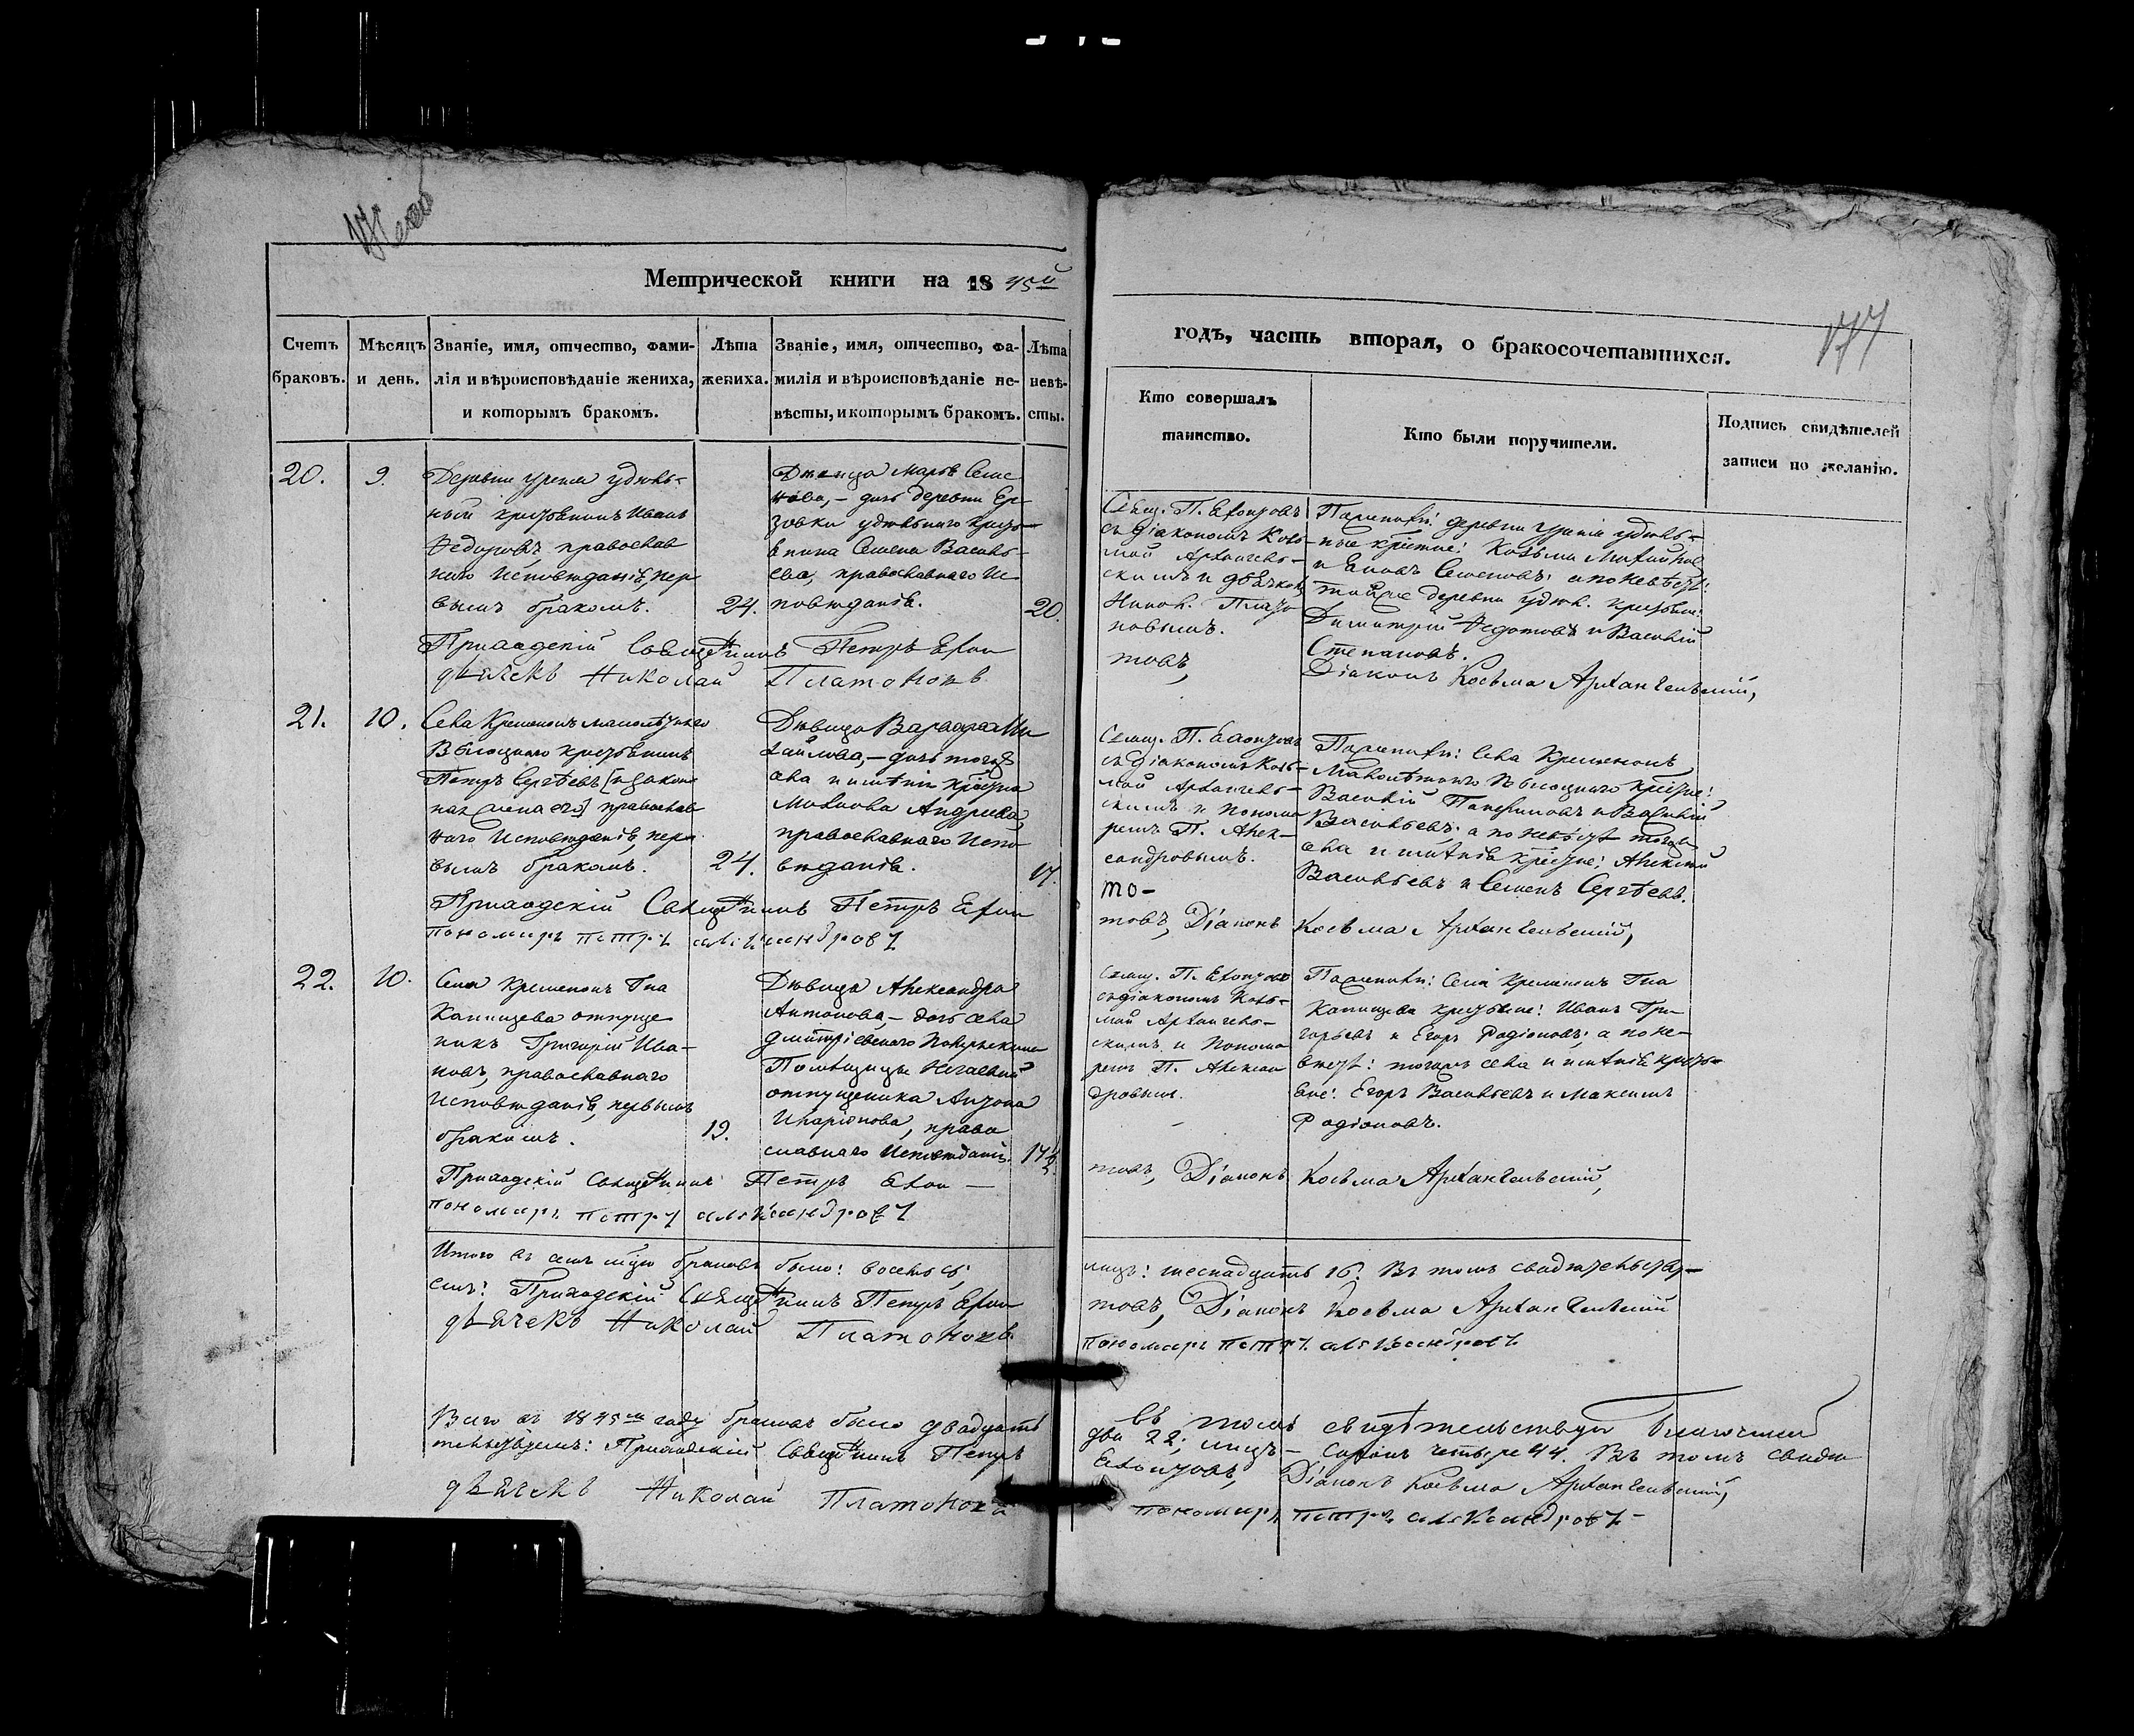 Метрической книги на 1845й
годъ, часть вторая, о бракосочетавшихся.
177
Счетъ браковъ.
Мѣсяцъ и день.
Званіе, имя, отчество, фами-
лія и вѣроисповѣданіе жениха,
и которымъ бракомъ.
Лѣта
жениха.
Званіе, имя, отчество, фа-
милія и вѣроисповѣданіе не-
вѣсты, и которымъ бракомъ.
Лѣта
невѣ-
сты.
Кто совершалъ
таинство.
Кто были поручители.
Подпись свидѣтелей
записи по желанію.
20.
9.
Деревни удѣль-
ный крестьянинъ Иванъ
Федоровъ, православ
наго исповѣданія, пер
вымъ бракомъ.
24.
Дѣвица Марѳа Семе
нова, – дочь деревни Ер
зовки удѣльнаго кресть-
янина Семена Василь-
ева, православнаго Ис
повѣданія.
20.
Свящ. П. Ехонтовъ
съ діакономъ Козь-
мой Архангель-
скимъ и дьячкомъ
Никол. Плато
новымъ.
деревни удѣль-
ные Козьма
и Семеновъ: а по невѣстѣ:
деревни удѣл.
Димитрій Федотовъ и Василій
Степановъ.
Приходскій Священникъ Петръ Ехон
товъ,
Діаконъ Косьма Архангельскій,
дьячекъ Николай Платоновъ
21.
10.
Села Кременокъ
крестьянинъ
Петръ Сергѣевъ православ
наго Исповѣданія, пер
вымъ бракомъ.
24.
Дѣвица Варвара Ми
хайлова, – дочь тогожъ
села и имѣнія
Андреева,
православнаго Испо
вѣданія.
17.
Свящ. П. Ехонтовъ
съ діакономъ Козь-
мой Архангель-
скимъ и понома
ремъ П. Алек-
сандровымъ.
Села Кременокъ
Василій и Василій
Васильевъ; а по невѣстѣ тогожъ
села и имѣнія Алексѣй
Васильевъ и Семенъ Сергѣевъ.
Приходскій Священникъ Петръ Ехон
то-
товъ, Діаконъ Косьма Архангельскій,
пономарь петръ александровъ
22.
10.
Села Кременокъ Гна
Капищева отпуще
никъ Григорій Ива-
новъ, православнаго
исповѣданія, первымъ
бракомъ.
19.
Дѣвица Александра
Антонова, – дочь села
Дмитріевскаго
Помѣщицы
отпущеника Антона
Иларіонова, право
славнаго Исповѣданія.
Свящ. П. Ехонтовъ
съ діакономъ Козь-
мой Архангель-
скимъ и понома
ремъ П. Алексан
дровымъ.
Села Кременокъ Гна
Капищева крестьяне: Иванъ Гри-
горьевъ и Егоръ Родіоновъ; а по не-
вѣстѣ: тогожъ села и имѣнія кресть-
яне: Егоръ Васильевъ и Максимъ
Родіоновъ.
Приходскій Священникъ Петръ Ехон –
товъ, Діаконъ Косьма Архангельскій,
пономарь петръ александровъ
Итого въ семъ мцѣ браковъ было: восемь 8;
лицъ: шеснадцать 16. Въ томъ свидѣтельству-
емъ: Приходскій Священникъ Петръ Ехон
товъ, Діаконъ Косьма Архангельскій
дьячекъ Николай Платоновъ.
пономарь петръ александровъ
Всего въ 1845мъ году браковъ было двадцать
два 22; лицъ – сорокъ четыре 44. Въ томъ свидѣ
тельствуемъ: Приходскій Священникъ Петръ
Ехонтовъ, Діаконъ Косьма Архангельскій,
дьячекъ Николай Платоновъ
пономарь петръ александровъ
въ томъ свидѣтельствую Благочинный